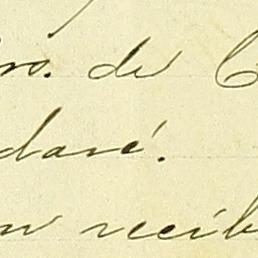 ros. de C
daré.
n recib